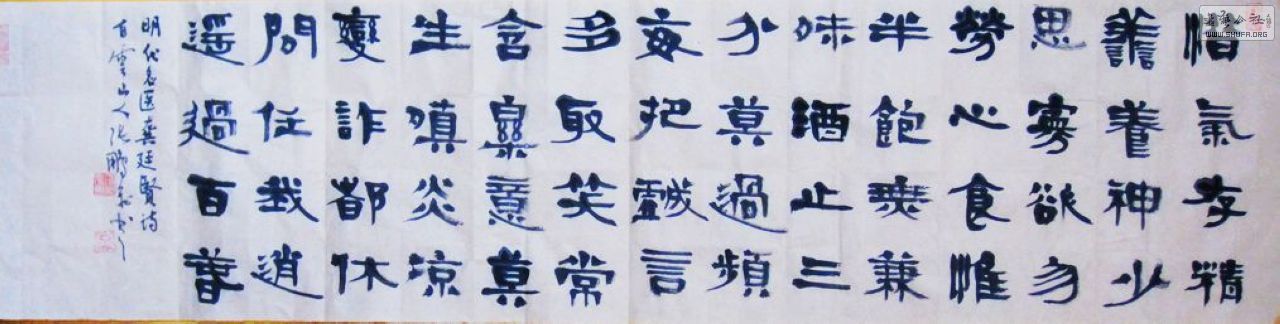 惜氣存精
譱養神少
思寡欲勿
勞心食惟
半飽無兼
味酒止三
分莫過頻
每把戲言
多取笑常
含樂意莫
生嗔炎涼
變詐都休
問任我逍
遥過百春
明代名医龔廷賢詩
白雲山人張鵬
書法公社
WWW.SHUFA.ORG